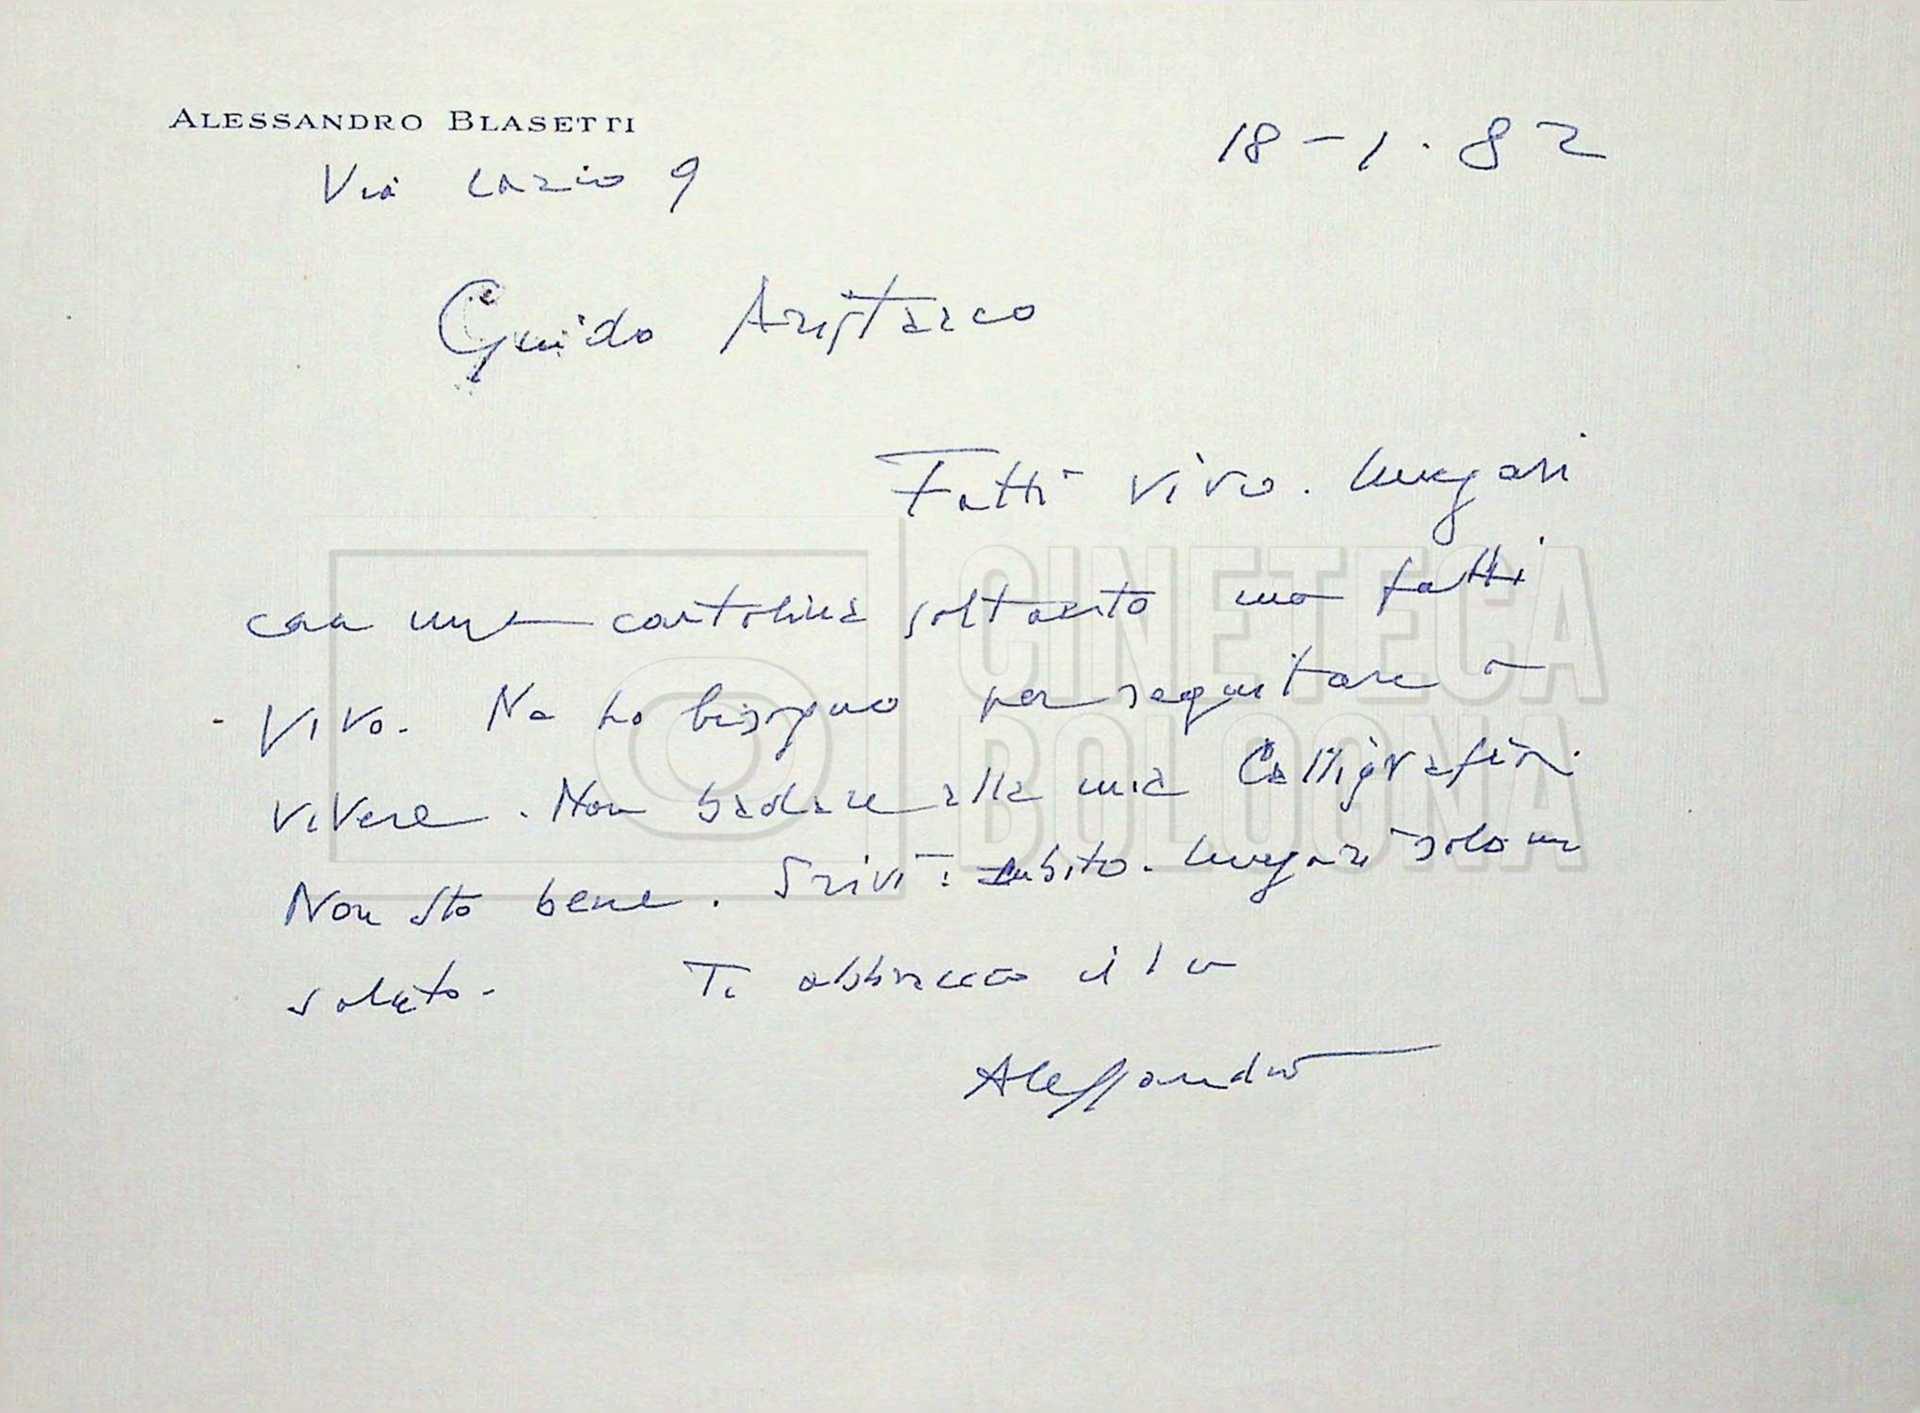 ALESSANDRO BLASETTI
18-1.82
Via Lazio 9
Guido Aristarco
Fatti vivo. Magari
con una cartolina soltanto ma fatti
vivo. Ne ho bisogno per seguitare a
vivere. Non badare alla mia calligrafia.
Non sto bene. Srivi subito. Magari solo un
saluto. Ti abbraccio il tuo
Alessandro
CINETECA
BOLOGNA